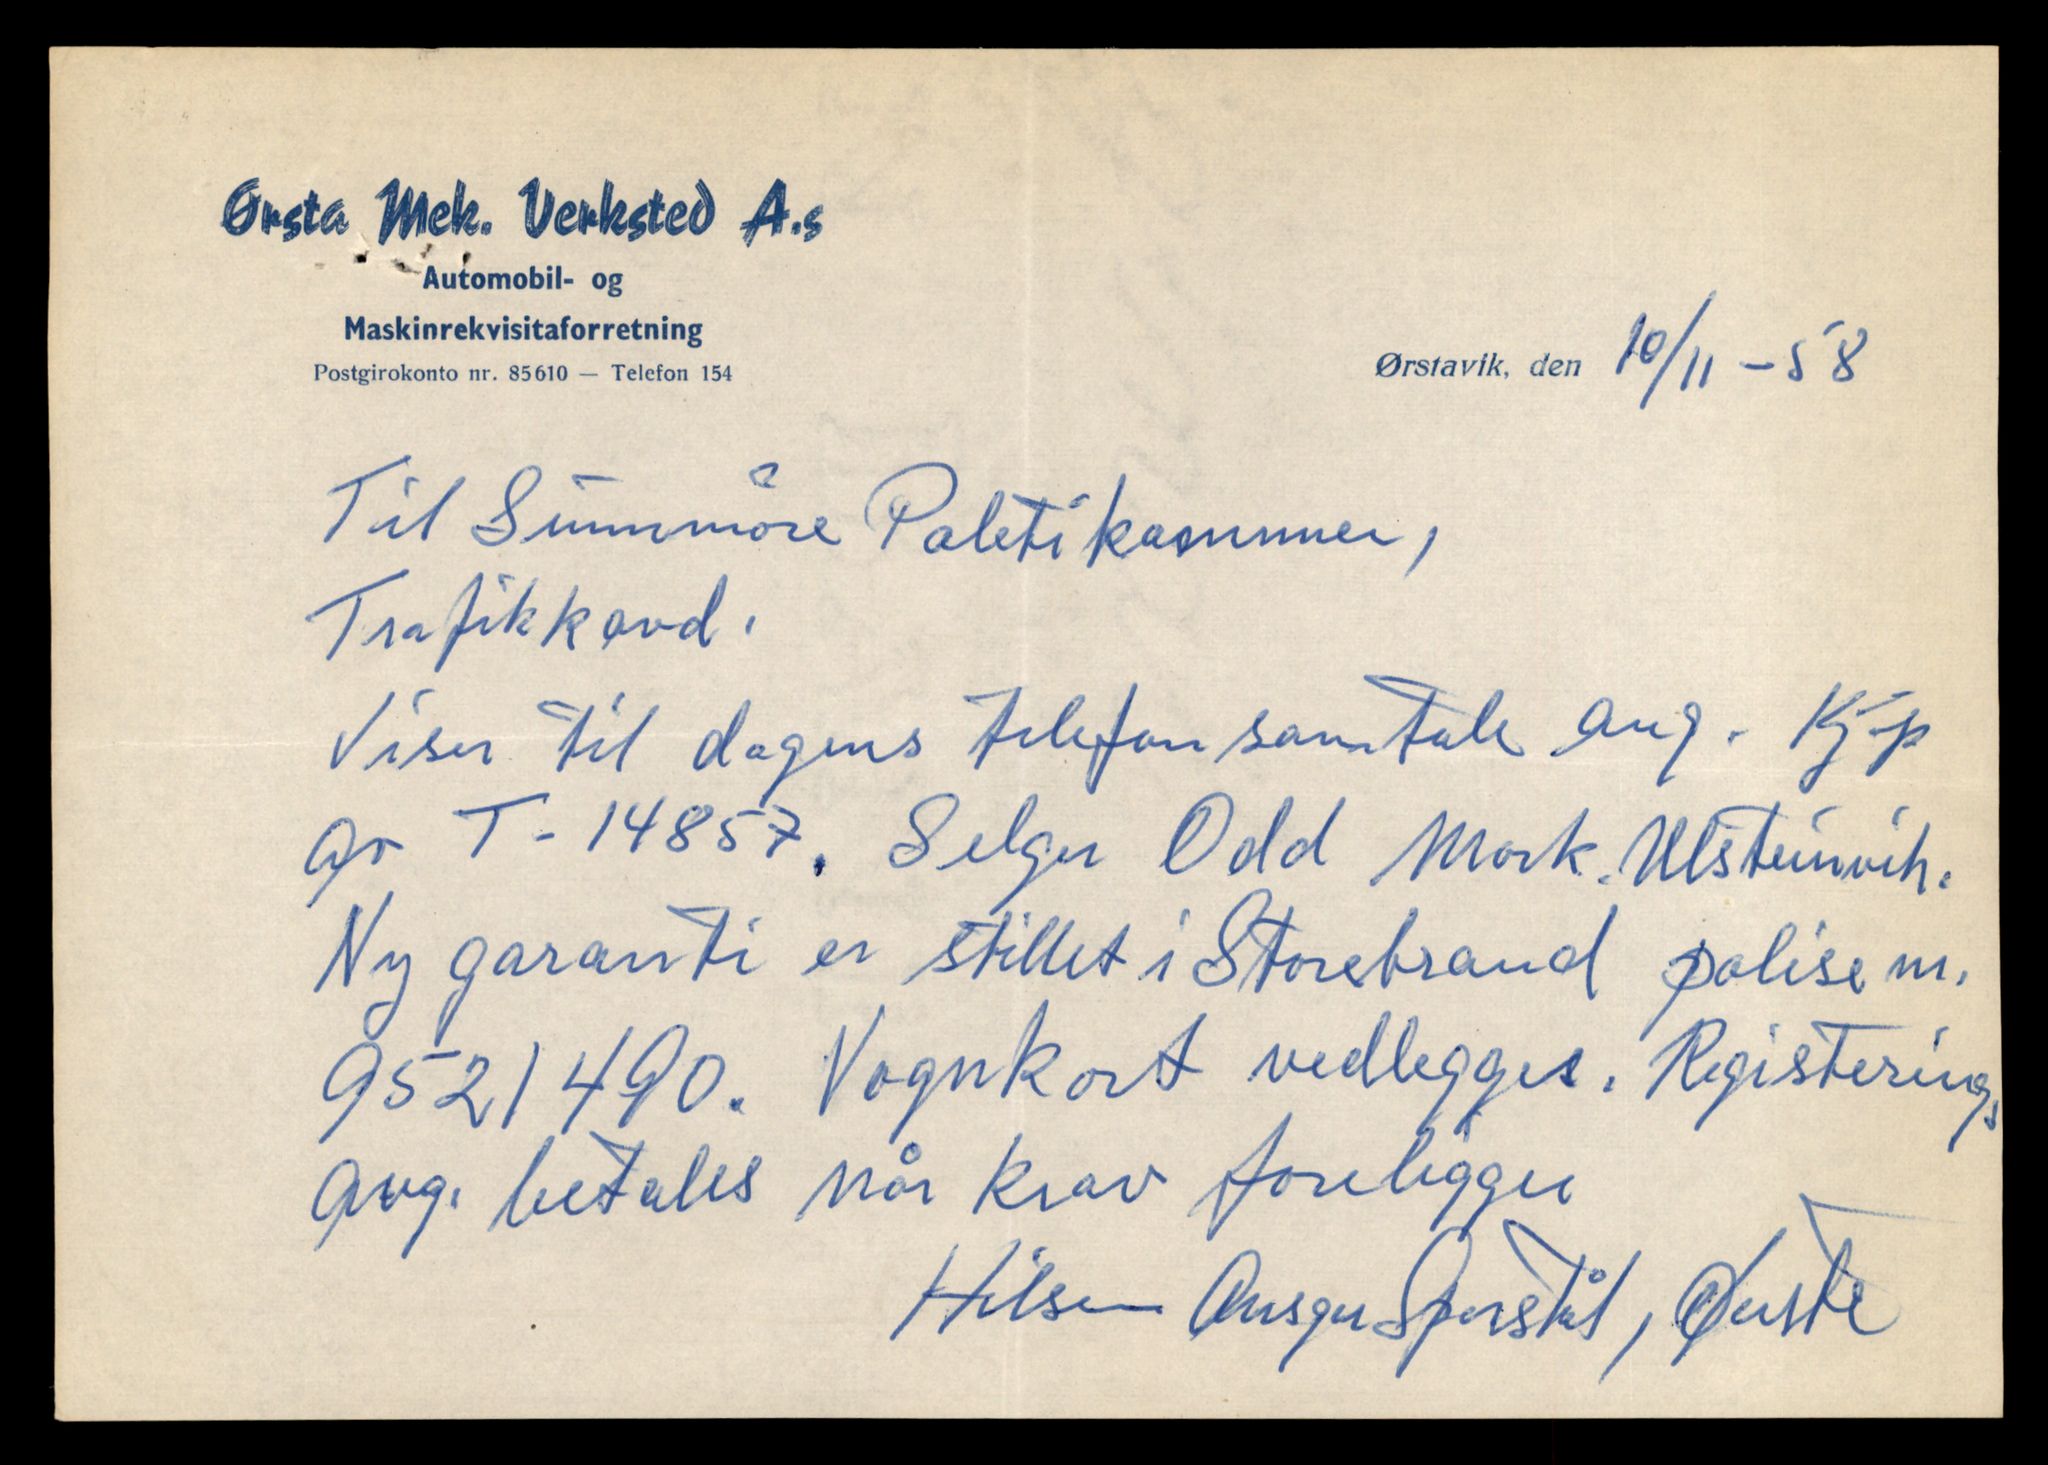 Ørsta Mek. Verksted A.s
Automobil- og
Maskinrekvisitaforretning
Postgirokonto nr. 85610 — Telefon 154
Ørstavik, den 10/11 - 58
Til Sunnmöre Politikammer,
Trafikkavd.
Viser til dagens telefonsamtale ang. Kjöp
av T- 14857. Selger Odd Mork. Ulsteinvik.
Ny garanti er stillet i Storebrand polise nr.
9521490. Vognkort vedlegges. Registerings
avg. betales når krav foreligger
Hilsen Ansgar Sperstål, Ørsta